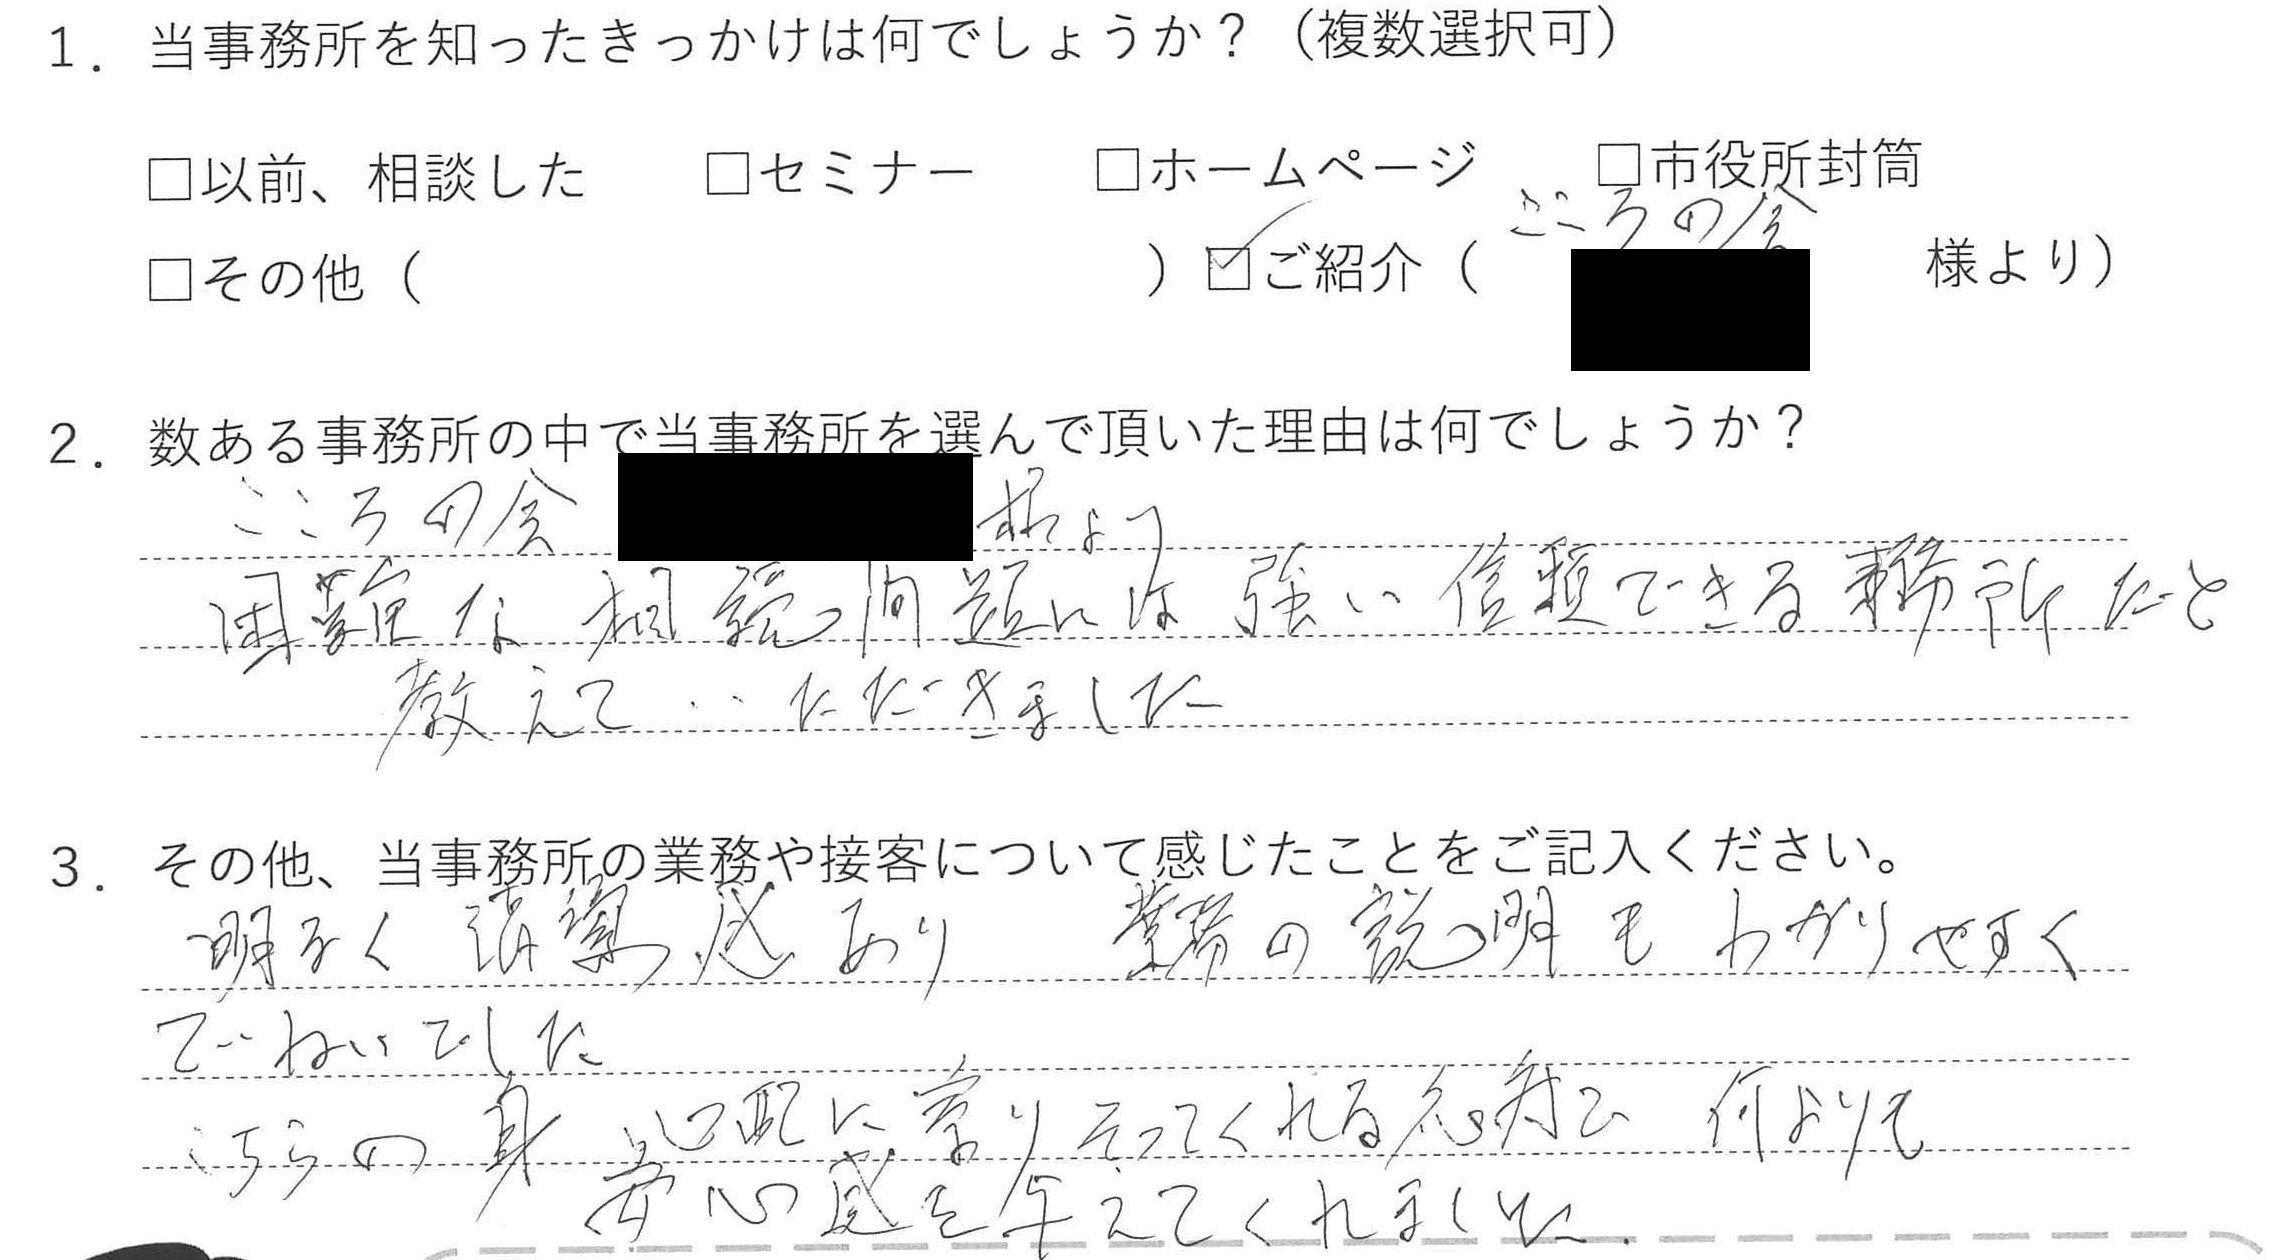 1．当事務所を知ったきっかけは何でしょうか？（複数選択可）
□以前、相談した　□セミナー　□ホームページ　□市役所封筒
こころの会
□その他（　　　）☑ご紹介（　　　様より）
2．数ある事務所の中で当事務所を選んで頂いた理由は何でしょうか？
こころの会　　　様より
困難な相続問題には強い信頼できる事務所だと
教えていただきました
3．その他、当事務所の業務や接客について感じたことをご記入ください。
明るく清潔感あり　業務の説明もわかりやすく
ていねいでした
こちらの身　心配に寄りそってくれる応対で　何よりも
安心感を与えてくれました.